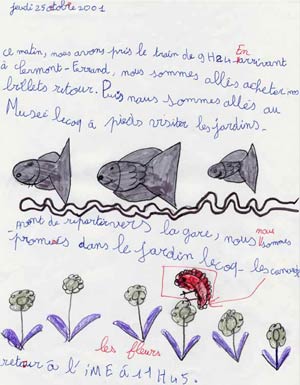 jeudi 25 octobre 2001
ce matin, nous avons pris le train de 9H24. En arrivant
à clermont-Ferrand, nous sommes allés acheter nos
billets retour. Puis nous sommes allés au
Museé lecoq à pieds visiter les jardins.
Avant de repartir vers la gare, nous nous sommes
promenés dans le jardin lecoq - les canards
les fleurs
retour à l'iME à 11H45.